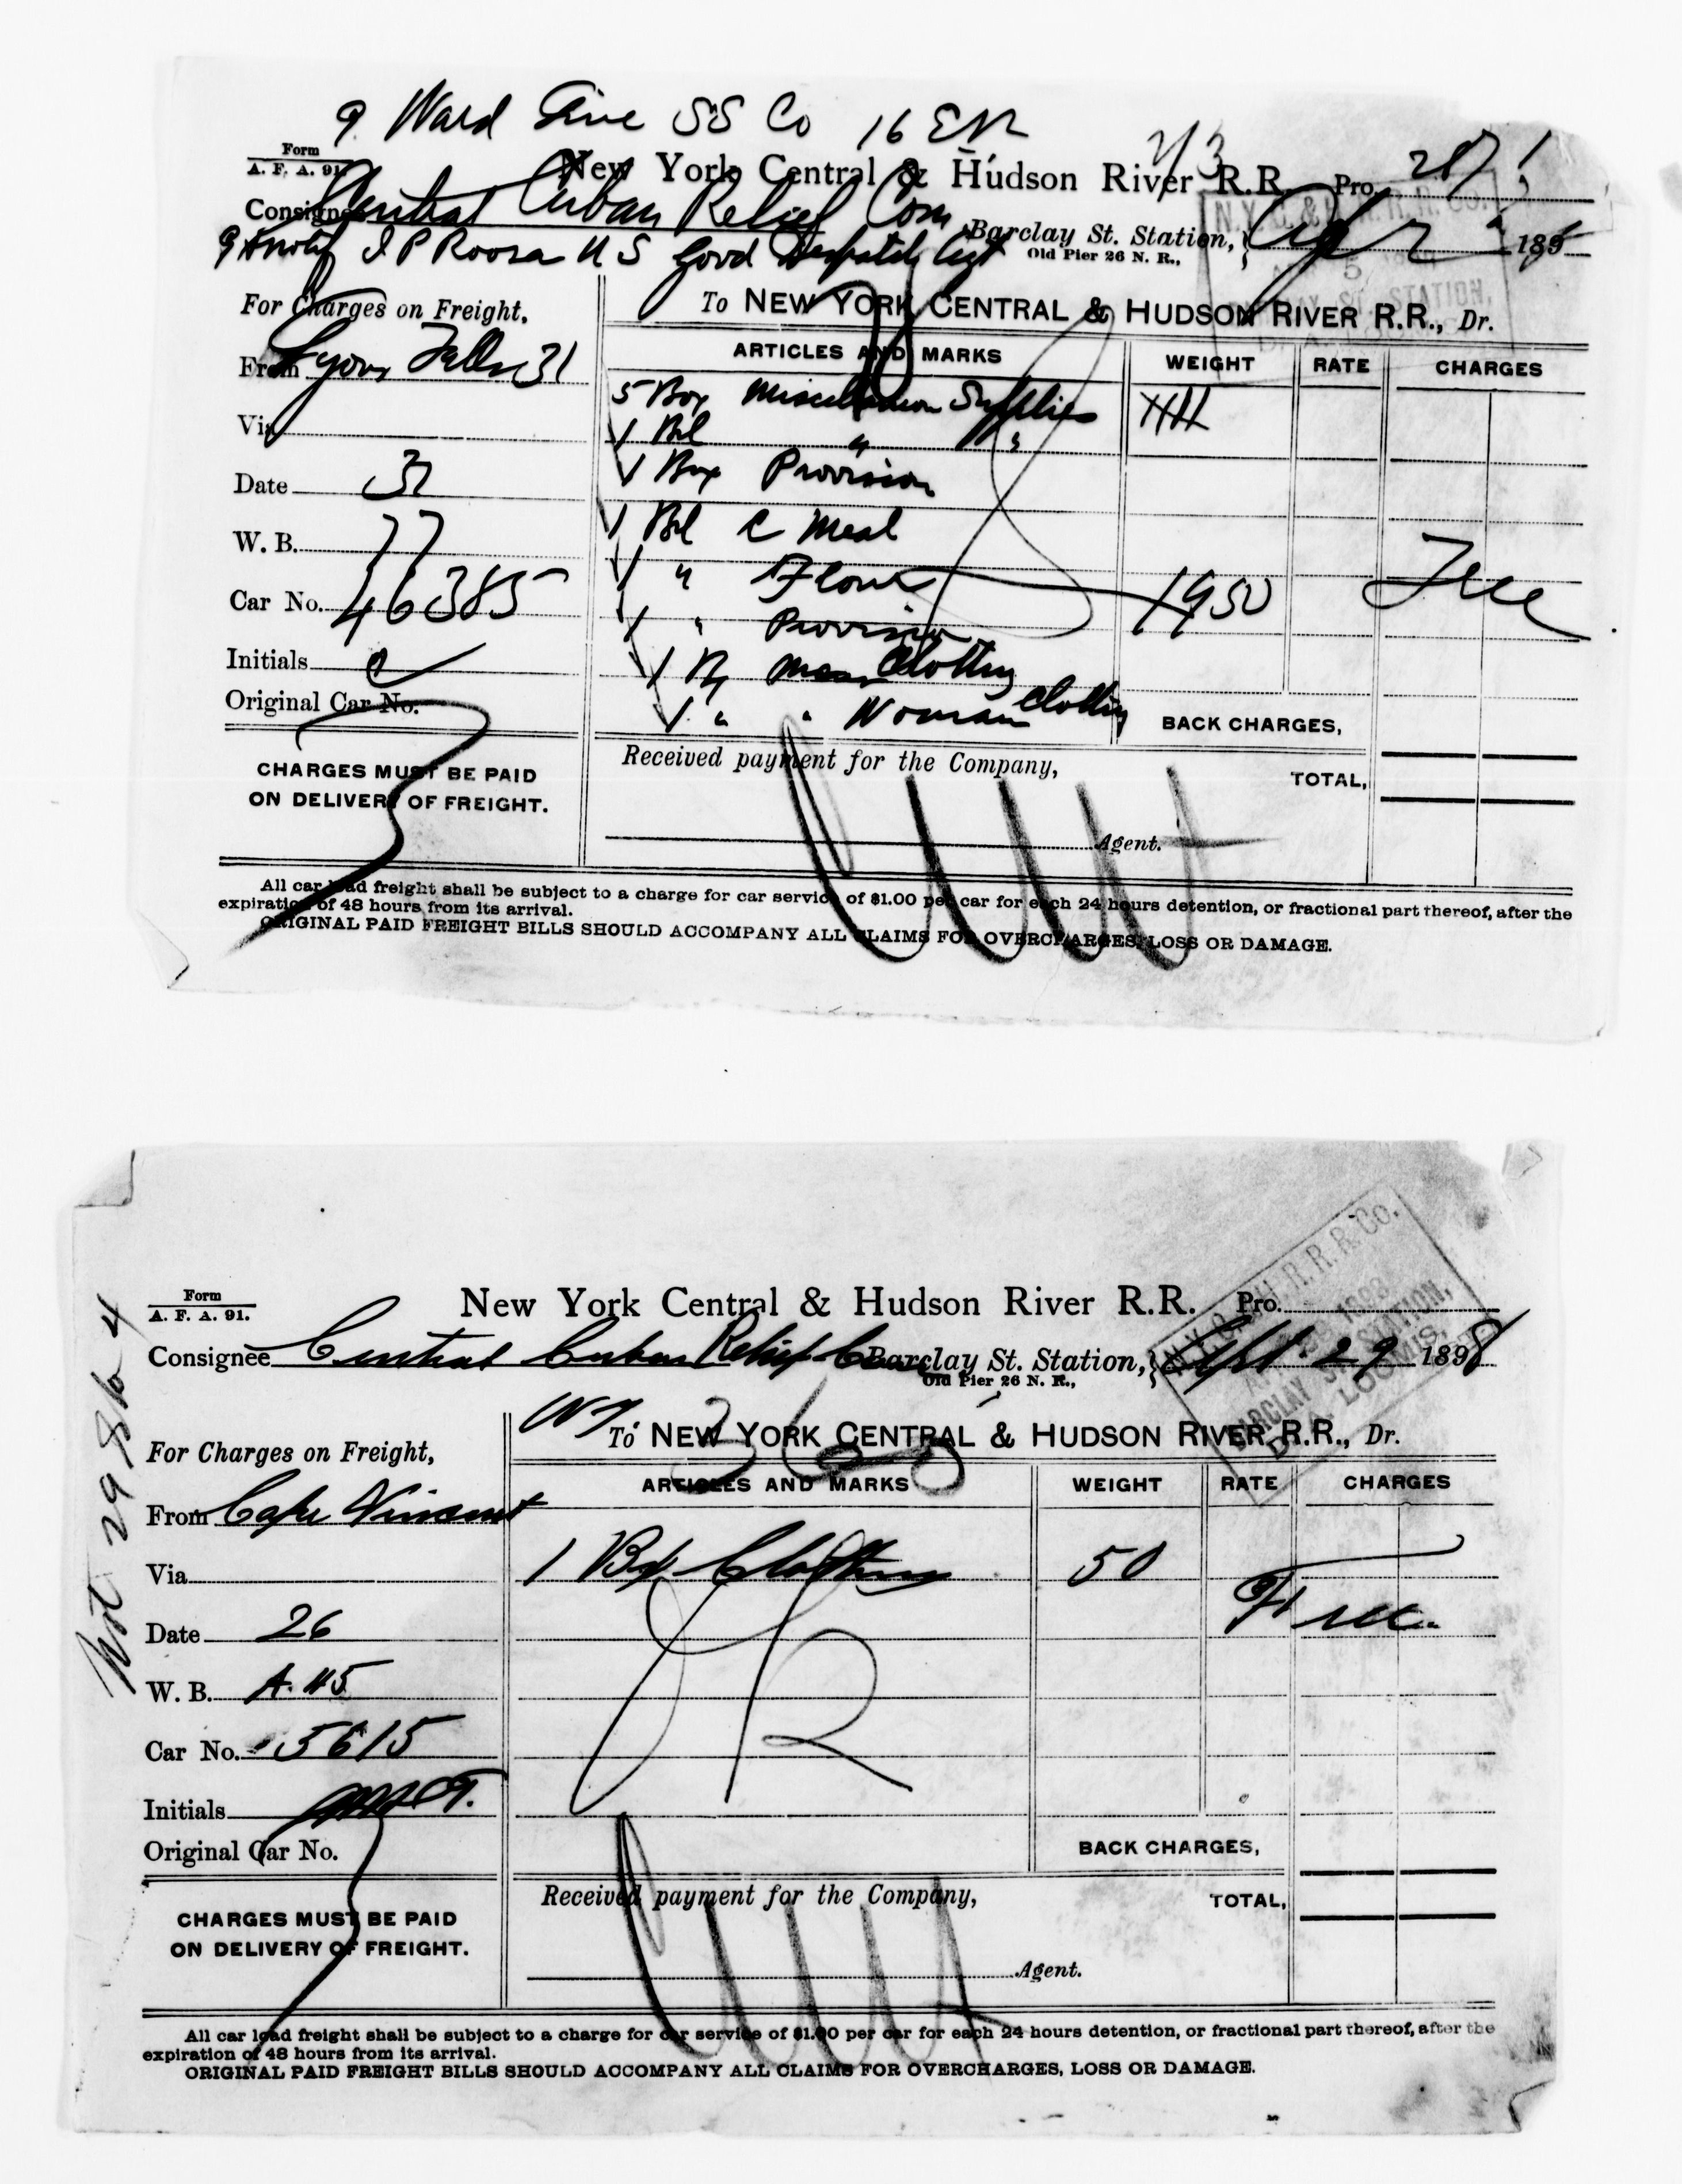 9 Ward Line SS Co 16 ER
Form
A. F. A. 91.
New York Central & Hudson River R.R.
Pro.
Consignee Central Cuban Relief Com
Barclay St. Station,
Old Pier 26 N. R.,
Apr 189
N.Y.C. & H.R.R.R. Co.
5
BARCLAY ST. STATION,
J P Roosa U S Govd Despatch Agt
For Charges on Freight,
To NEW YORK CENTRAL & HUDSON RIVER R.R., Dr.
From Lyons Falls 31
ARTICLES AND MARKS WEIGHT RATE CHARGES
5 Box Miscellaneous Supplies
Via
1 Bbl " "
1 Box Provision
Date 31
1 Bbl C Meal
W. B. 77
1 " Flour 1950 Free
Car No. 46385
1 " Provision
Initials
1 Bx Mens Clothing
Original Car No.
1 " " Woman Clothing
BACK CHARGES,
CHARGES MUST BE PAID
ON DELIVERY OF FREIGHT.
Received payment for the Company,
TOTAL,
Agent.
All car load freight shall be subject to a charge for car service of $1.00 per car for each 24 hours detention, or fractional part thereof, after the
expiration of 48 hours from its arrival.
ORIGINAL PAID FREIGHT BILLS SHOULD ACCOMPANY ALL CLAIMS FOR OVERCHARGES, LOSS OR DAMAGE.
Form
A. F. A. 91.
New York Central & Hudson River R.R.
Pro.
Consignee Central Cuban Relief Com
Barclay St. Station,
Old Pier 26 N. R.,
Apl 29 1898
N.Y.C. & H.R.R.R. Co.
1898
BARCLAY ST. STATION,
D. A. LOOMIS,
NY
For Charges on Freight,
To NEW YORK CENTRAL & HUDSON RIVER R.R., Dr.
ARTICLES AND MARKS WEIGHT RATE CHARGES
From Cape Vincent
1 Bx Clothing 50 Free
Via
Date 26
W. B. A. 45
Car No. 5615
Initials
Original Car No.
BACK CHARGES,
CHARGES MUST BE PAID
ON DELIVERY OF FREIGHT.
Received payment for the Company,
TOTAL,
Agent.
All car load freight shall be subject to a charge for car service of $1.00 per car for each 24 hours detention, or fractional part thereof, after the
expiration of 48 hours from its arrival.
ORIGINAL PAID FREIGHT BILLS SHOULD ACCOMPANY ALL CLAIMS FOR OVERCHARGES, LOSS OR DAMAGE.